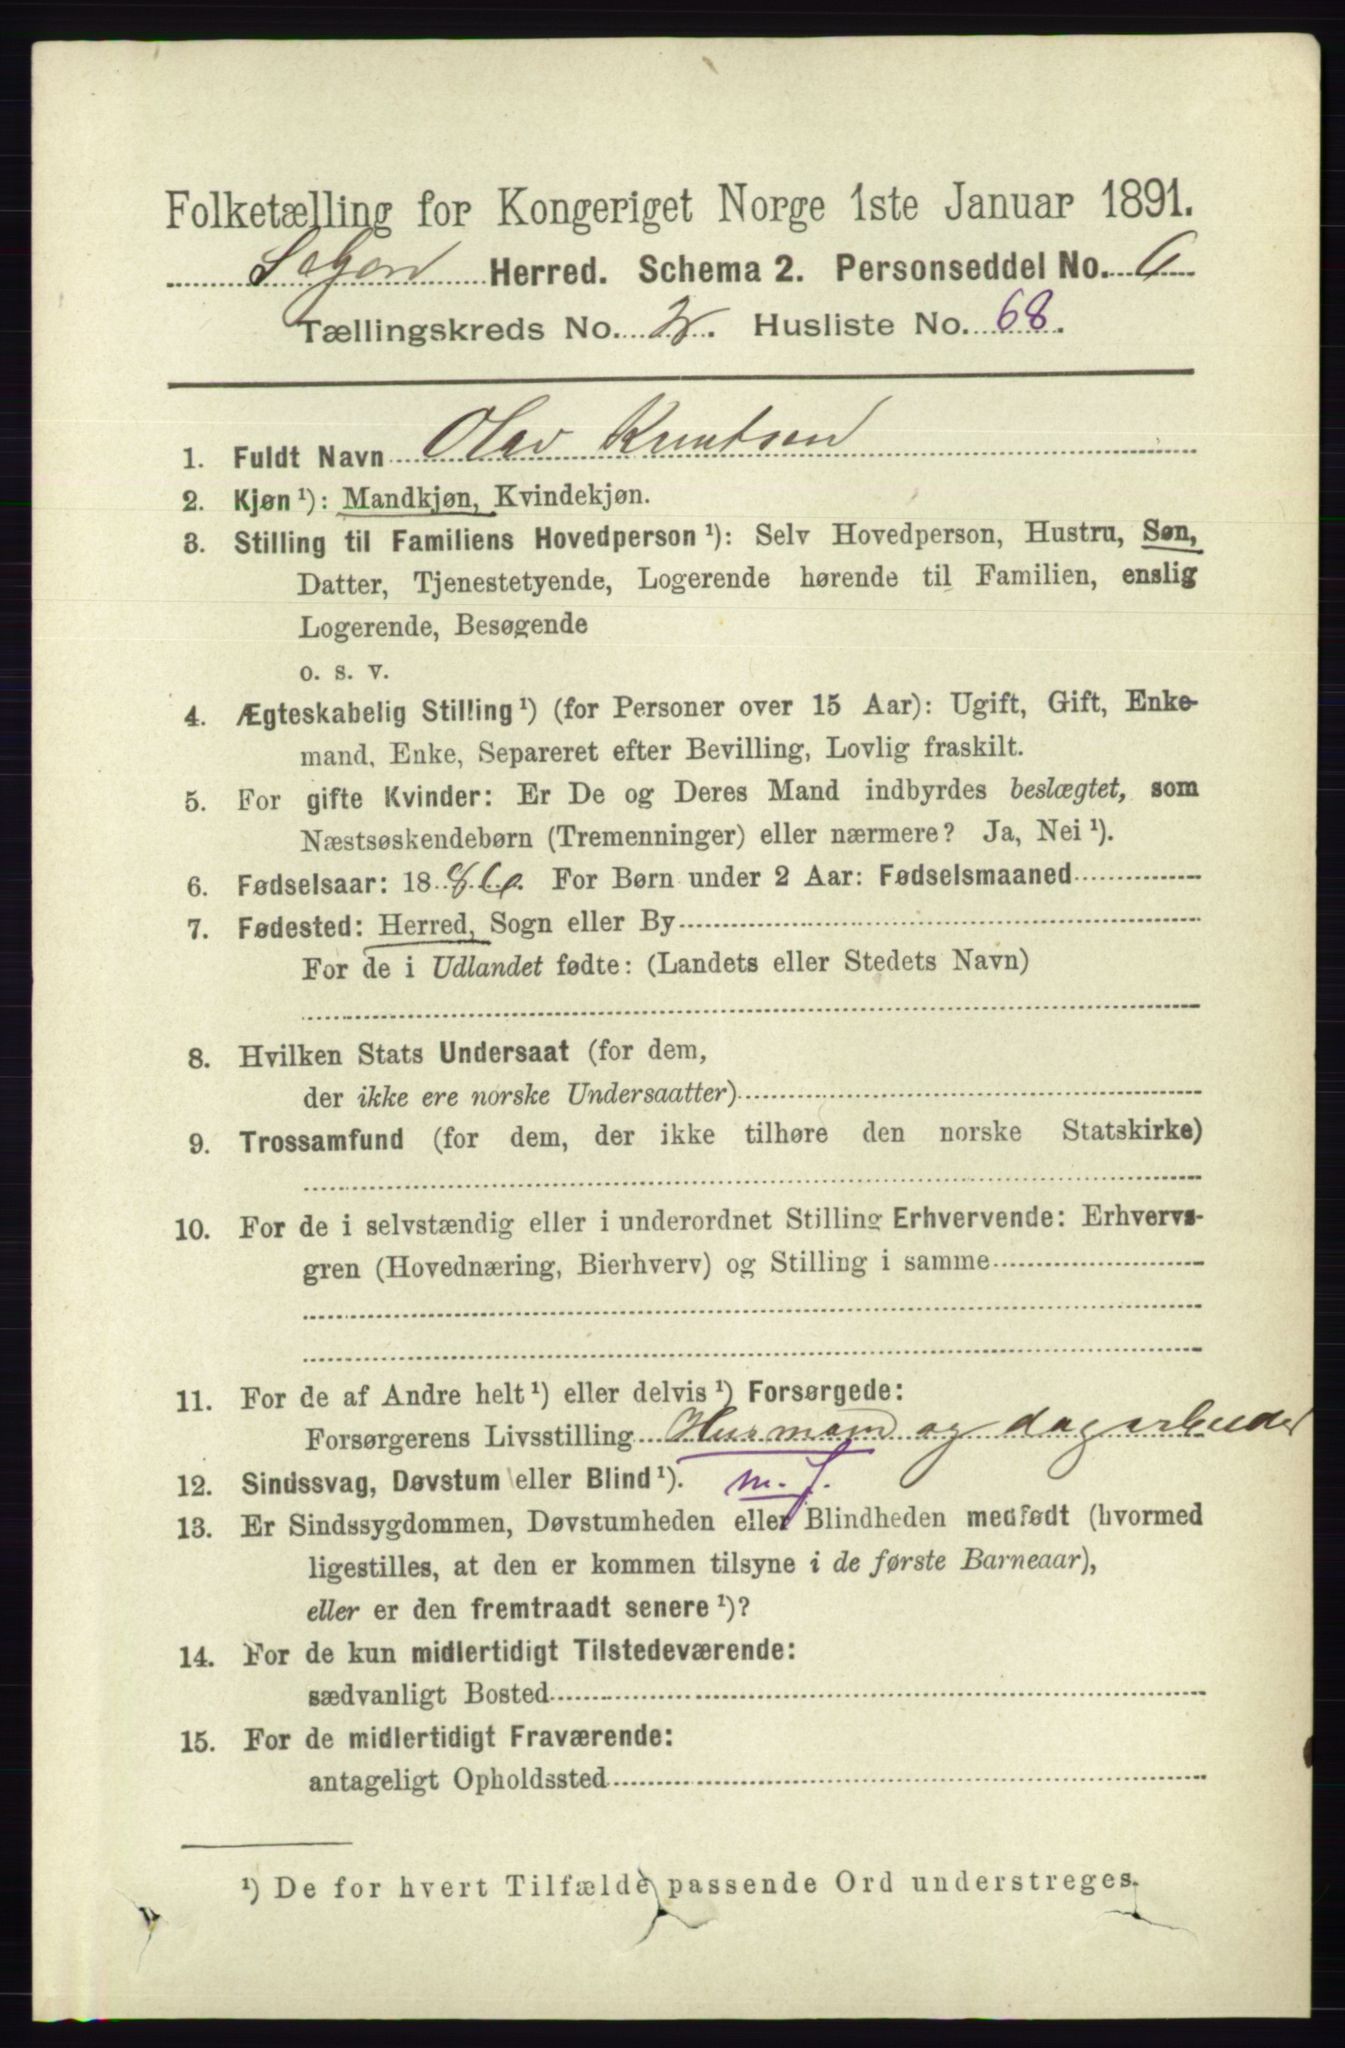 Folketælling for Kongeriget Norge 1ste Januar 1891.
Herred. Schema 2. Personseddel No. 6
Tællingskreds No. 2. Husliste No. 68.
1. Fuldt Navn Olav Knutsen
2. Kjøn ¹): Mandkjøn, Kvindekjøn.
3. Stilling til Familiens Hovedperson ¹): Selv Hovedperson, Hustru, Søn,
Datter, Tjenestetyende, Logerende hørende til Familien, enslig
Logerende, Besøgende
o. s. v.
4. Ægteskabelig Stilling ¹) (for Personer over 15 Aar): Ugift, Gift, Enke-
mand, Enke, Separeret efter Bevilling, Lovlig fraskilt.
5. For gifte Kvinder: Er De og Deres Mand indbyrdes beslægtet, som
Næstsøskendebørn (Tremenninger) eller nærmere? Ja, Nei ¹).
6. Fødselsaar: 1886. For Børn under 2 Aar: Fødselsmaaned
7. Fødested: Herred, Sogn eller By
For de i Udlandet fødte: (Landets eller Stedets Navn)
8. Hvilken Stats Undersaat (for dem,
der ikke ere norske Undersaatter)
9. Trossamfund (for dem, der ikke tilhøre den norske Statskirke)
10. For de i selvstændig eller i underordnet Stilling Erhvervende: Erhvervs-
gren (Hovednæring, Bierhverv) og Stilling i samme
11. For de af Andre helt ¹) eller delvis ¹) Forsørgede:
Forsørgerens Livsstilling Husmand og dagarbeider
12. Sindssvag, Døvstum eller Blind ¹). m. J.
13. Er Sindssygdommen, Døvstumheden eller Blindheden medfødt (hvormed
ligestilles, at den er kommen tilsyne i de første Barneaar),
eller er den fremtraadt senere ¹)?
14. For de kun midlertidigt Tilstedeværende:
sædvanligt Bosted
15. For de midlertidigt Fraværende:
antageligt Opholdssted
¹) De for hvert Tilfælde passende Ord understreges.